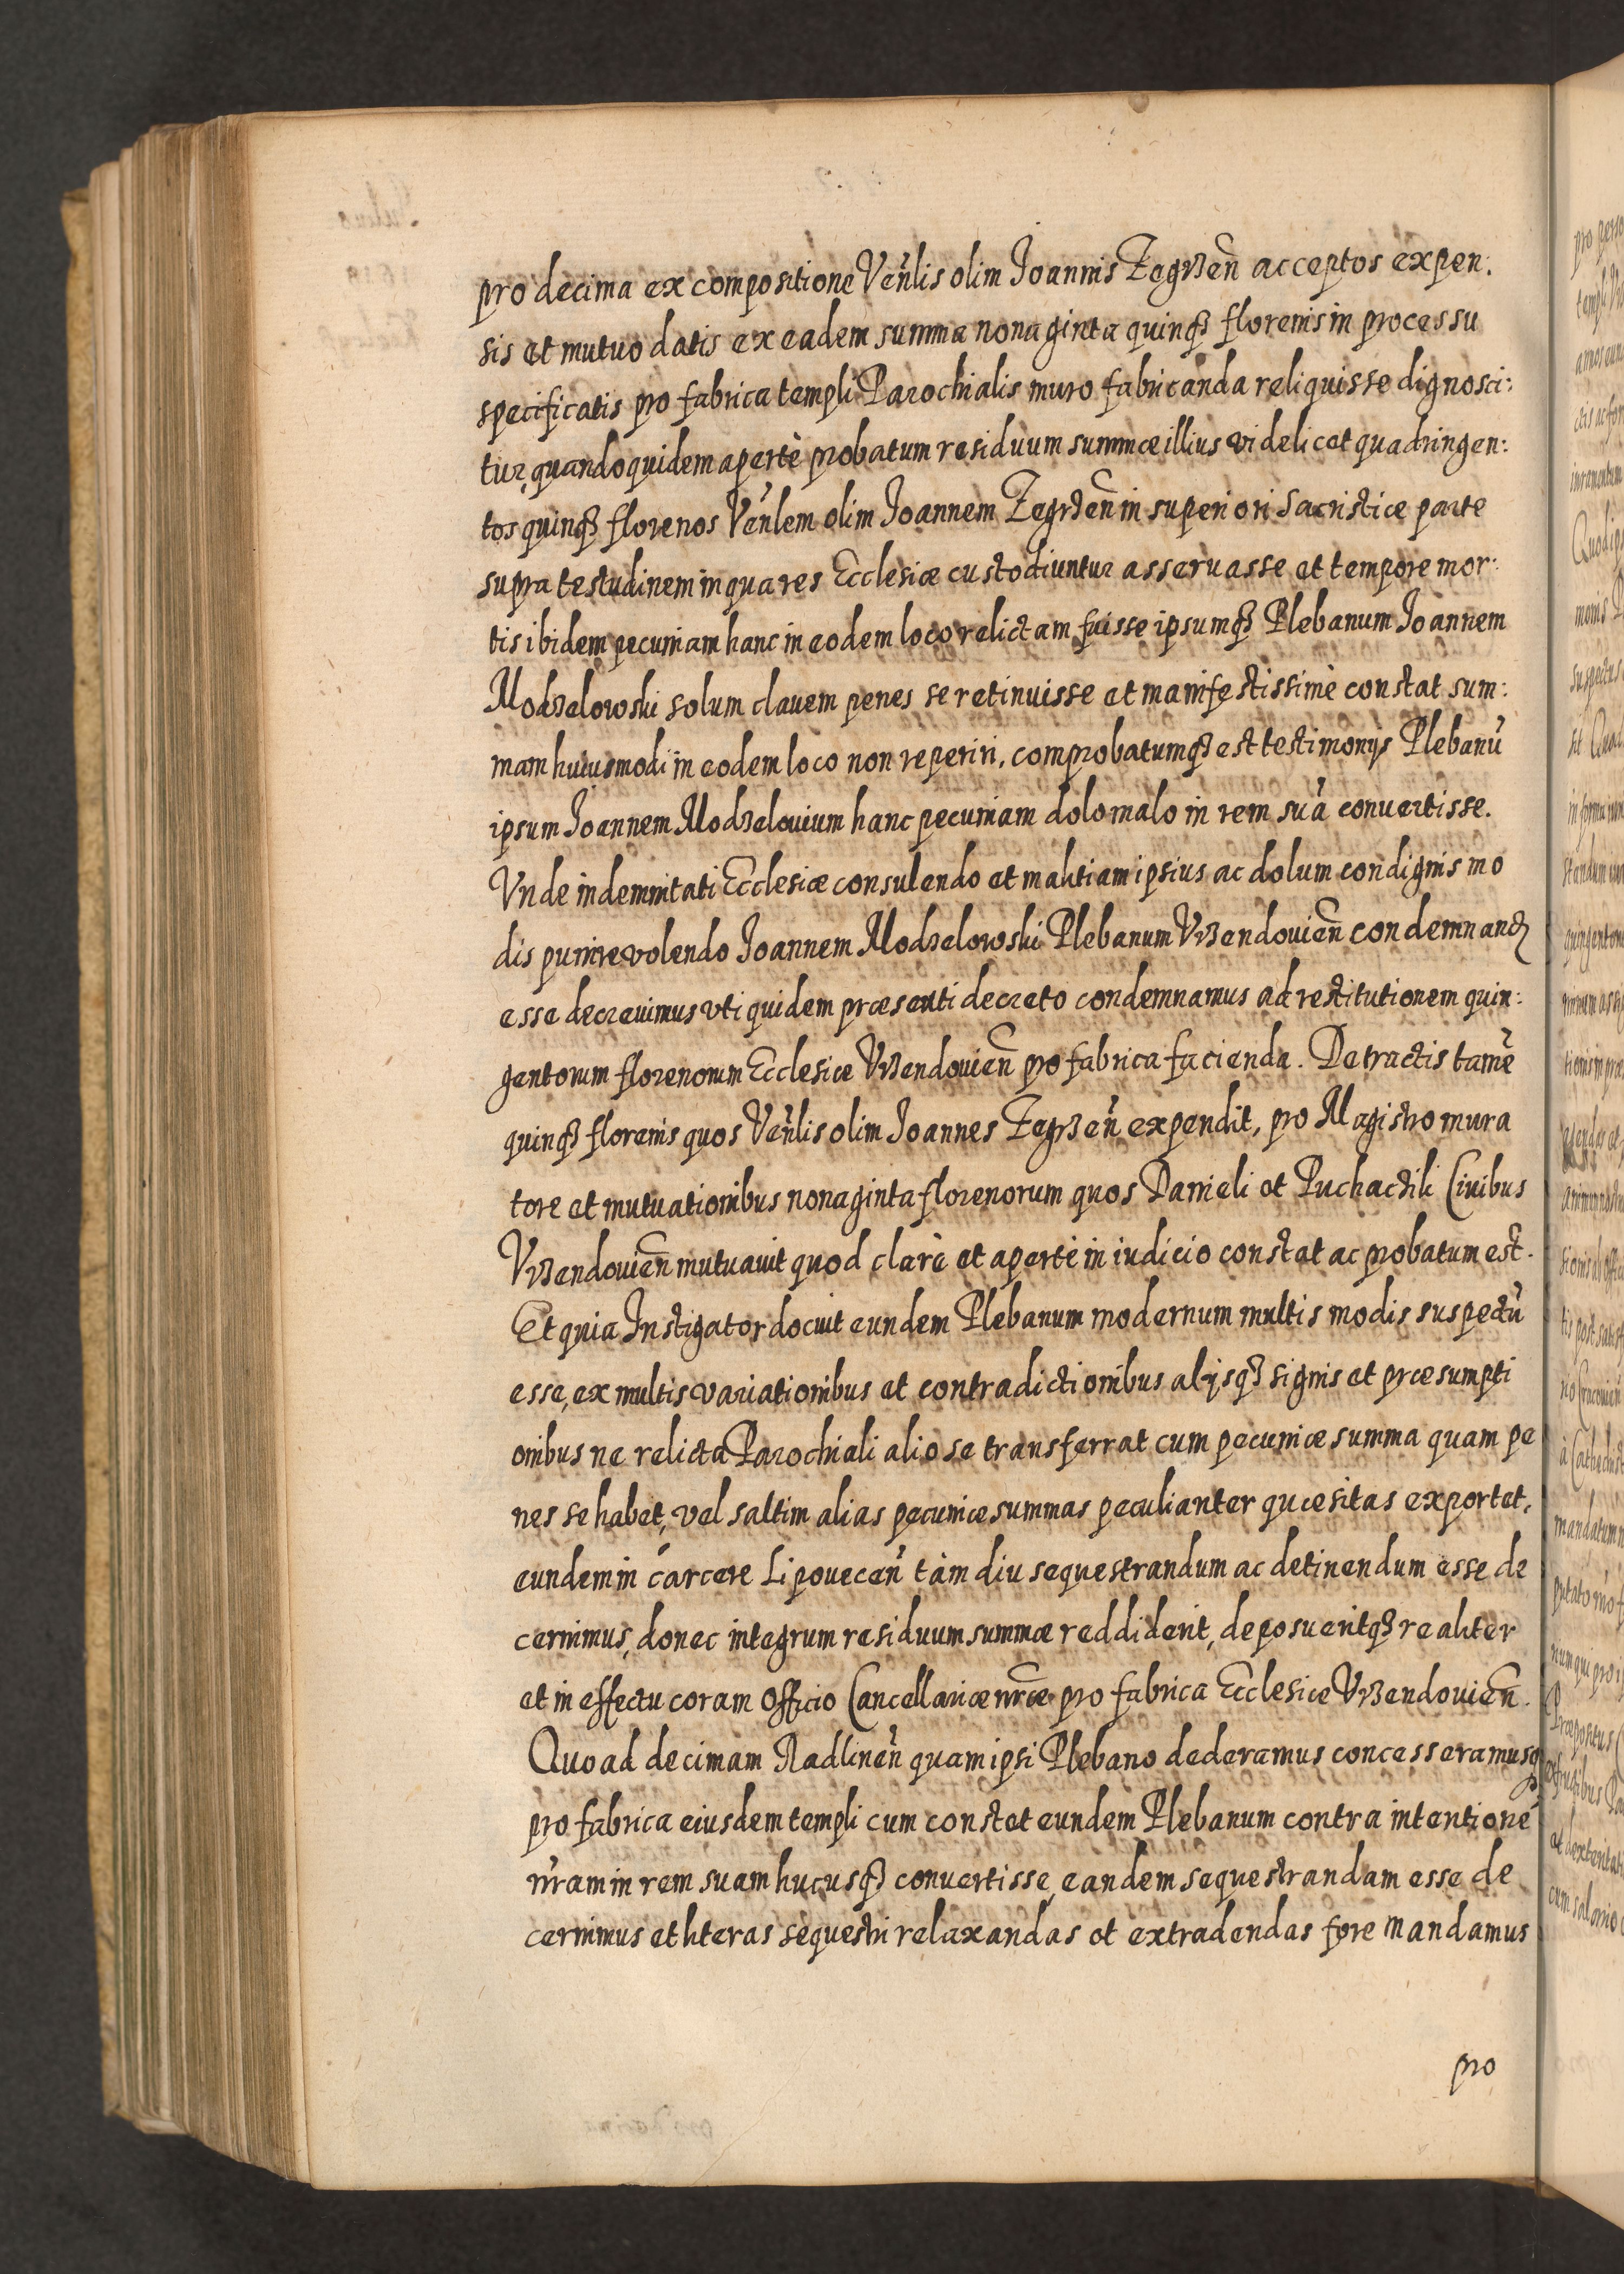 pro decima ex compositione Ven̄lis olim Ioannis Zegrzen̄ acceptos expen:
sis et mutuo datis ex eadem summa nonaginta quinqȝ florenis in processu
specificatis pro fabrica templi Parochialis muro fabricanda reliquisse dignosci:
tur, quandoquidem apertè probatum residuum summæ illius videlicet quadringen:
tos quinqȝ florenos Ven̄lem olim Ioannem Zegrzen̄ in superiori Sacristiæ parte
supra testudinem in qua res Ecclesiæ custodiuntur asseruasse et tempore mor:
tis ibidem pecuniam hanc in eodem loco relictam fuisse ipsumqȝ Plebanum Ioannem
Modzelowski solum clauem penes se retinuisse et manifestissimè constat sum:
mam huiusmodi in eodem loco non reperiri, comprobatumqȝ est testimonijs Plebanū
ipsum Ioannem Modzelouium hanc pecuniam dolo malo in rem suā conuertisse.
Vnde indemnitati Ecclesiæ consulendo et malitiam ipsius ac dolum condignis mo
dis punire volendo Ioannem Modzelowski Plebanum Vrzendouien̄ condemnandȝ
esse decreuimus vti quidem præsenti decreto condemnamus ad restitutionem quin:
gentorum florenorum Ecclesiæ Vrzendouien̄ pro fabrica facienda. Detractis tamē
quinqȝ florenis quos Ven̄lis olim Ioannes Zegrzen̄ expendit, pro Magistro mura
tore et mutuationibus nonaginta florenorum quos Danieli et Puchactili Ciuibus
Vrzendouien̄ mutuauit quod clarè et apertè in iudicio constat ac probatum est.
Et quia Instigator docuit eundem Plebanum modernum multis modis suspectū
esse, ex multis variationibus et contradictionibus alijsqȝ signis et præsumpti
onibus ne relicta Parochiali alio se transferrat cum pecuniæ summa quam pe
nes se habet, vel saltim alias pecuniæ summas peculianter quæsitas exportet,
eundem in cárcere Lipouecen̄ tàm diu sequestrandum ac detinendum esse de
cernimus, donec integrum residuum summæ reddiderit, deposueritqȝ realiter
et in effectu coram Officio Cancellariæ nr̄æ pro fabrica Ecclesiæ Vrzendouien̄.
Quo ad decimam Radlinen̄ quam ipsi Plebano dederamus concesseramusqȝ
pro fabrica eiusdem templi cum constet eundem Plebanum contra intentionē
nr̄am in rem suam hucusqȝ conuertisse, eandem sequestrandam esse de
cernimus et literas sequestri relaxandas et extradendas fore mandamus
pro